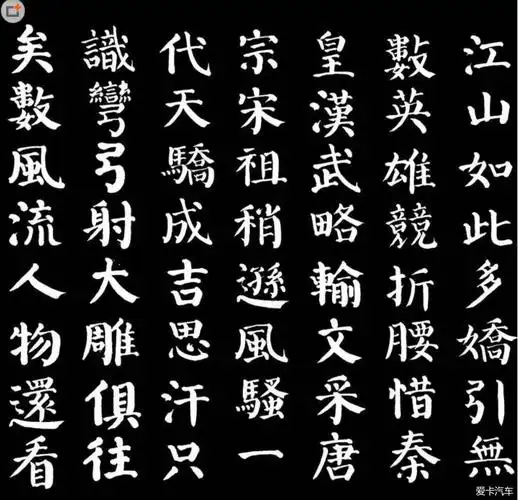 江山如此多嬌引無
數英雄競折腰惜秦
皇漢武略輸文采唐
宗宋祖稍遜風騷一
代天驕成吉思汗只
識彎弓射大雕俱往
矣數風流人物還看
爱卡汽车